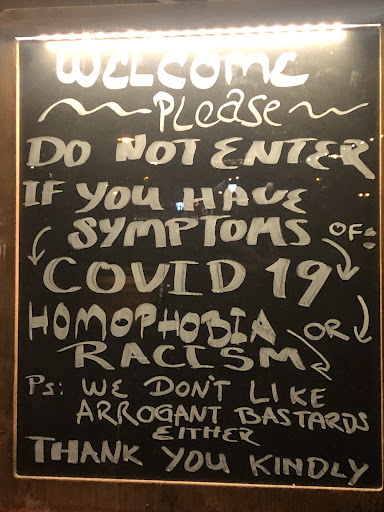 WELCOME
PLEASE
DO NOT ENTER
IF YOU HAVE
SYMPTOMS OF:
COVID 19
HOMOPHOBIA OR
RACISM
PS: WE DON'T LIKE
ARROGANT BASTARDS
EITHER
THANK YOU KINDLY